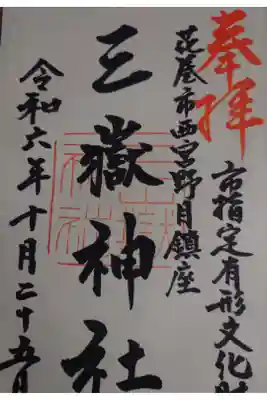 奉拝
市指定有形文化財
花巻市西宮野目鎮座
三嶽神社
令和六年十月二十五日